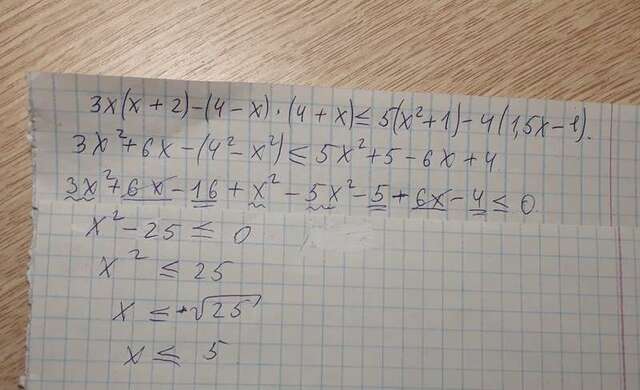 3x(x+2)-(4-x)·(4+x)≤5(x²+1)-4(1,5x-1).
3x²+6x-(4²-x²)≤5x²+5-6x+4
3x²+6x-16+x²-5x²-5+6x-4≤0
x²-25≤0
x²≤25
x≤+√25
x≤5